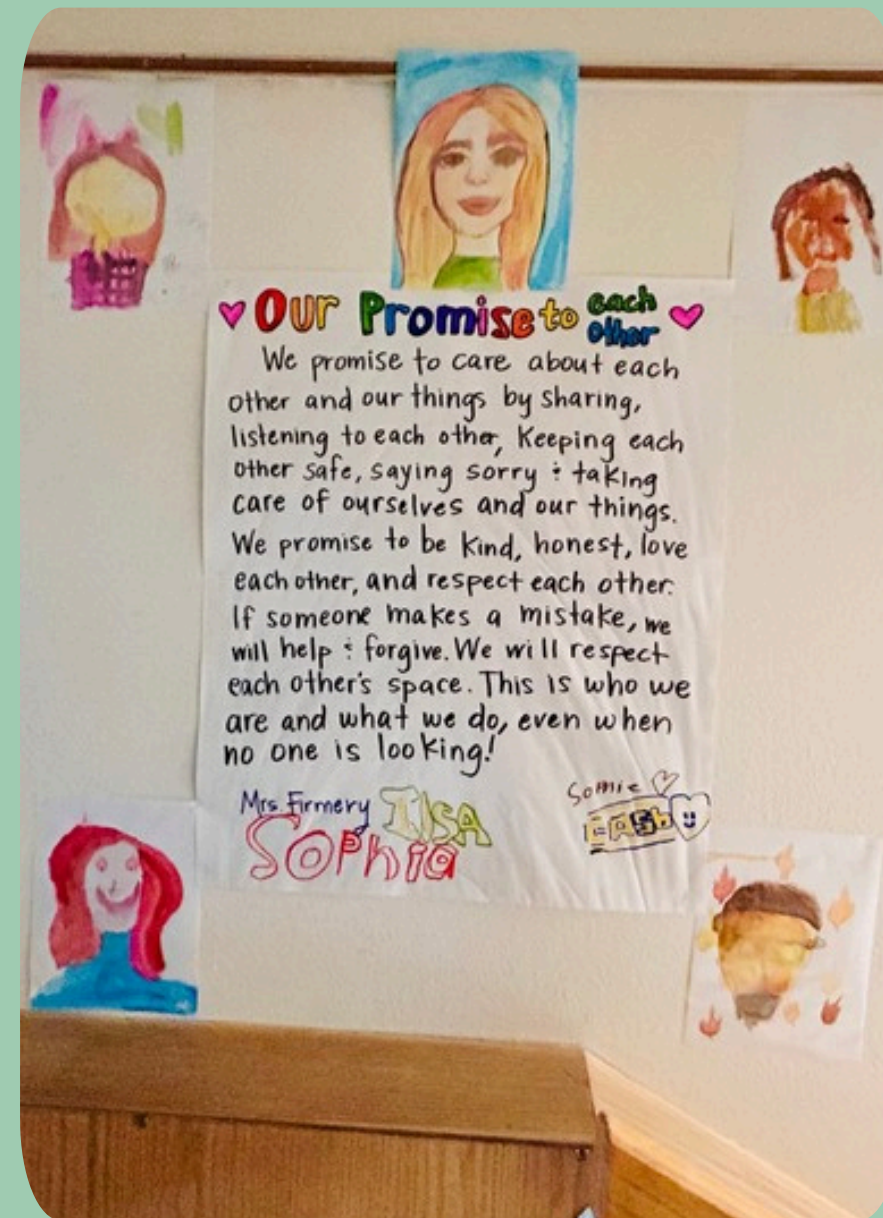 Our Promise to each other
We promise to care about each
other and our things by sharing,
listening to each other, Keeping each
other safe, saying sorry & taking
care of ourselves and our things.
We promise to be kind, honest, love
each other, and respect each other.
If someone makes a mistake, we
will help & forgive. We will respect
each other's space. This is who we
are and what we do, even when
no one is looking!
Mrs. Firmery ILSA
Sophia
Somie
CASh